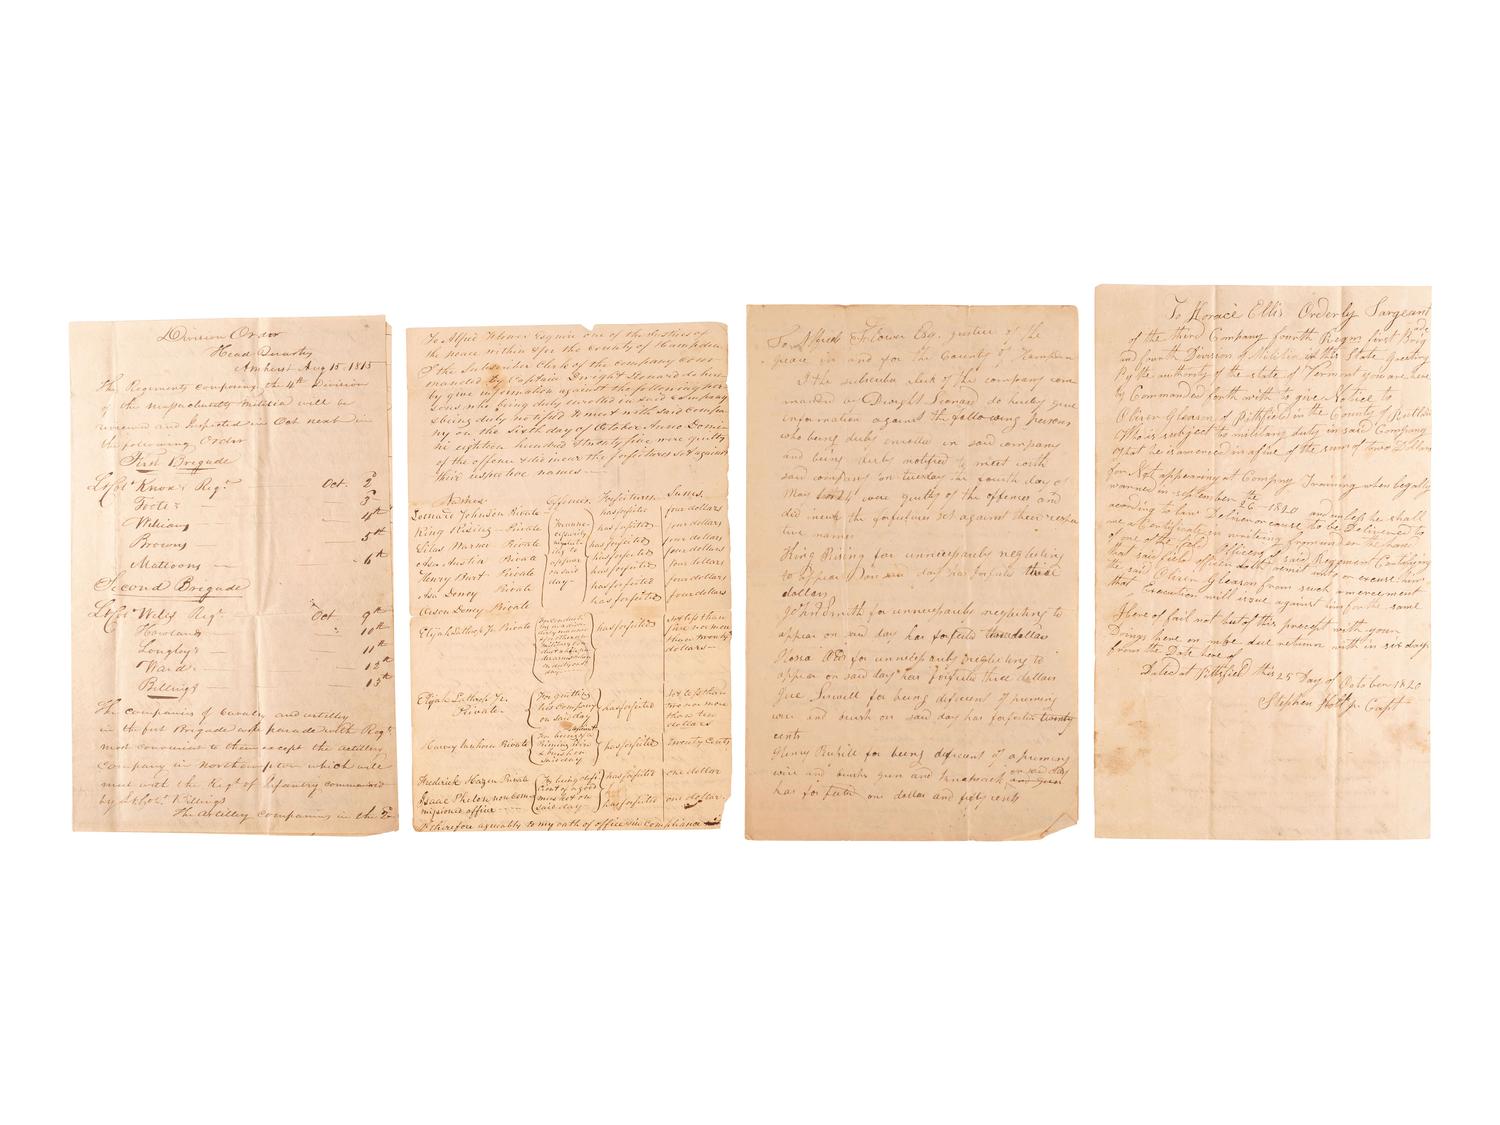 Division Order
Head Quarters
Amherst Aug 15. 1815
The Regiments composing the 4th Division
of the massachusetts militia will be
reviewed and Inspected in Oct next in
the following Order
First Brigade
Lt Col Knox's Regt Oct. 2d
Foots 3d
Williams 4th
Browns 5th
Mattoons 6th
Second Brigade
Lt Col Wells Regt Oct 9th
Howlands 10th
Longleys 11th
Wards 12th
Billings 13th
The companies of Cavalry and artillery
in the first Brigade will parade with Regts
most convenient to them except the artillery
company in Northampton which will
meet with the Regt of Infantry commanded
by Lt Col Billings
The Artillery companies in the 2d
To Alfred Flower Esquire one of the Justices of
the peace within & for the County of Hampden
I the Subscriber Clerk of the company com-
manded by Captain Dwight Leonard do here
by give information against the following per-
sons who being duly enrolled in said company
& being duly notified to meet with said Compa-
ny on the Sixth day of October Anno Domi-
ni eighteen hundred & twenty five were guilty
of the offences & did incur the forfeitures set against
their respective names
Names Offences Forfeitures Sums
Leonard Johnson Private has forfeited four dollars
King Rising Private has forfeited four dollars
Silas Warner Private has forfeited four dollars
Asa Austin Private has forfeited four dollars
Henry Burt Private has forfeited four dollars
Asa Doney Private has forfeited four dollars
Orson Doney Private has forfeited four dollars
For unne-
cessarily
neglect-
ing to
appear
on said
day
Elijah Lathrop Jr Private has forfeited not less than
five nor more
than twenty
dollars
Elijah Lathrop Jr
Private
For quitting
his company
on said day
has forfeited
not less than
two nor more
than ten
dollars
Harvey Private has forfeited Twenty Cents
Priming Wire
& Brush on
said day
Frederick Hazen Private has forfeited one dollar
Isaac Phelon non com-
missioned officer has forfeited one dollar
For being defi-
cient of a good
on
said day
I therefore agreeably to my oath of office & in compliance
To Alfred Flower Esq. justice of the
peace in and for the County of Hampden
I the subscriber clerk of the company com
manded by Dwight Leonard do hereby give
information against the following persons
who being duly enrolled in said company
and being duly notified to meet with
said company on tuesday the fourth day of
May were guilty of the offences and
did incur the forfeitures set against their respec
tive names
King Rising for unnecessarily neglecting
to appear on said day has forfeited three
dollars
John Smith for unnecessarily neglecting to
appear on said day has forfeited three dollars
for unnecessarily neglecting to
appear on said day has forfeited three dollars
for being deficient of priming
wire and brush on said day has forfeited twenty
cents
Henry for being deficient of a priming
wire and brush gun and knapsack on said day
has forfeited one dollar and fifty cents
To Horace Ellis Orderly Sargeant
of the third Company fourth Regm first Brigade
and fourth Division of Militia in this State Greeting
By the authority of the state of Vermont you are here
by Commanded forth with to give Notice to
Oliver Gleason of Pittsfield in the County of Rutland
Who is subject to military duty in said Company
that he is amerced in a fine of the sum of two Dollars
for Not appearing at Company Training when legally
warned in september the 26 1820 and unless he shall
according to law Deliver or cause to be Delivered to
me a Certificate in writing from under the hand
of one of the field Officers of said Regiment Certifying
that said field officer doth remit or excuse him
the said Oliver Gleason from such amercement
that Execution will issue against him for the same
Hereof fail not but of this precept with your
Doings here on make due return with in six days
from the Date here of
Dated at Pittsfield this 25 Day of October 1820
Stephen Holt Jr. Capt